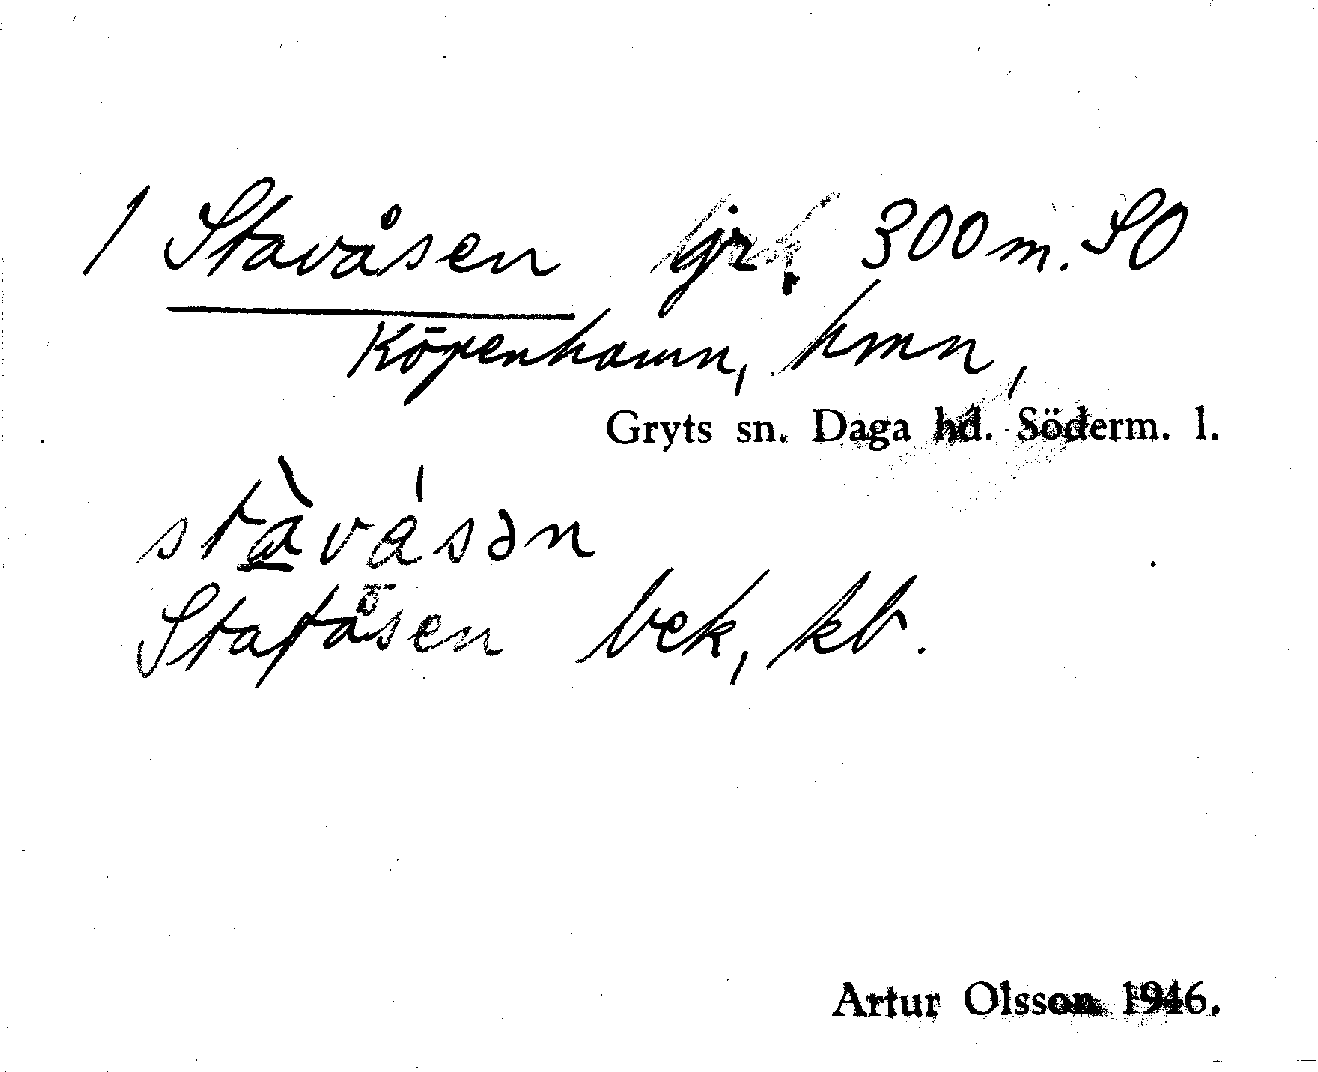 1 Stavåsen ljrk. 300 m. SO
Köpenhamn, hmn,
Gryts sn. Daga hd. Söderm. l.
stàvásən
Stafåsen bek, kb.
Artur Olsson 1946.